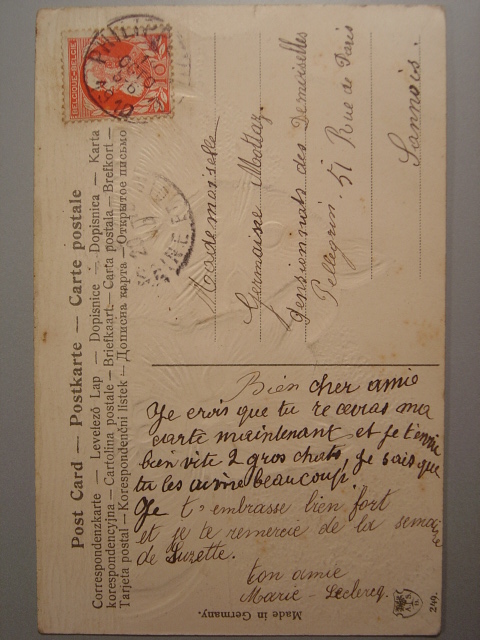 Post Card — Postkarte — Carte postale
Correspondenzkarte — Levelező Lap — Dopisnice — Dopisnica — Karta
korespondencyjna — Cartolina postale — Briefkaart — Carta postala — Brefkort —
Tarjeta postal — Korespondenční lístek — Дописна карта — Открытое письмо
BELGIQUE-BELGIE
10
Mademoiselle
Germaine Mottaz
pensionnats des Demoiselles
Pellegrin. 51 Rue de Paris
Sannois.
Bien cher amie
Je crois que tu recevras ma
carte maintenant et je t'envoie
bien vite 2 gros chats, je sais que
tu les aime beaucoup.
Je t'embrasse bien fort
et je te remercie de la semaine
de Suzette.
ton amie
Marie-Leclercq.
Made in Germany.
249.